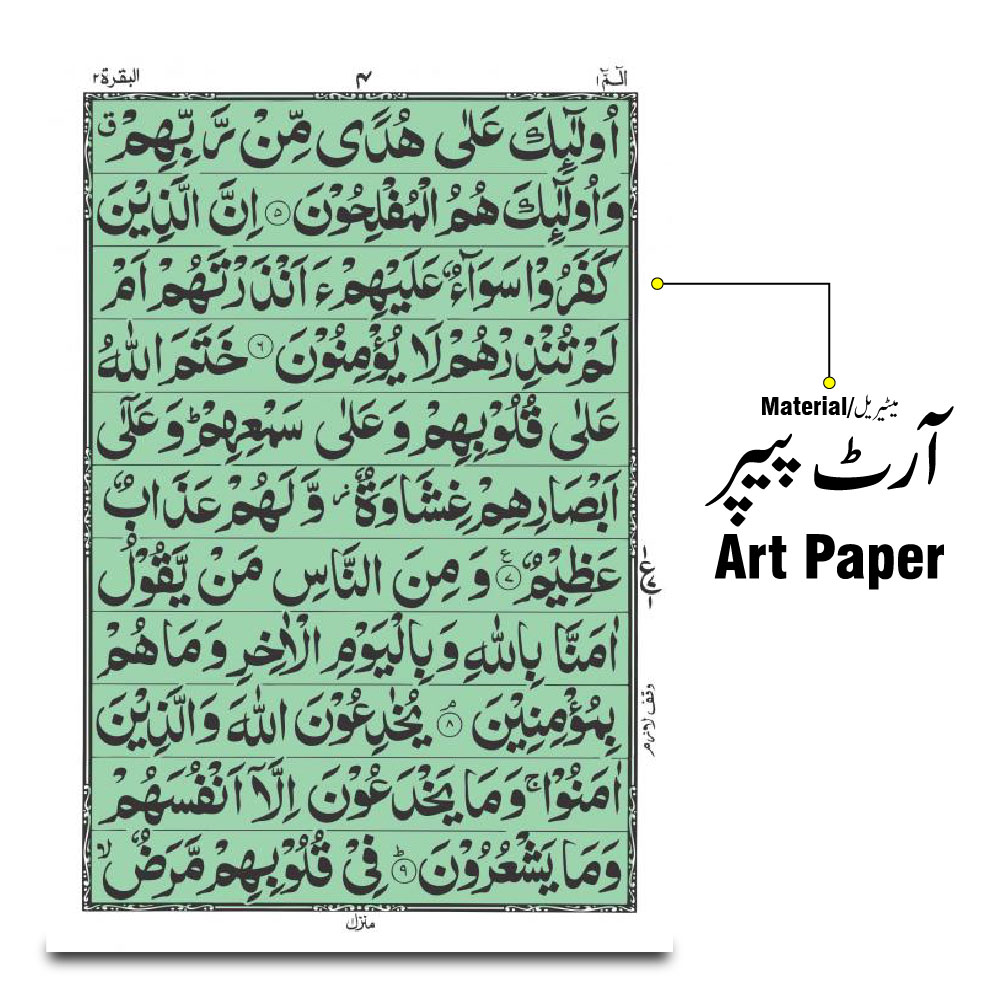 الٓمّٓ ۱
۴
البقرة ۲
اُولٰٓئِكَ عَلٰى هُدًى مِّنْ رَّبِّهِمْ ق
وَاُولٰٓئِكَ هُمُ الْمُفْلِحُوْنَ ۵ اِنَّ الَّذِيْنَ
كَفَرُوْا سَوَآءٌ عَلَيْهِمْ ءَاَنْذَرْتَهُمْ اَمْ
لَمْ تُنْذِرْهُمْ لَا يُؤْمِنُوْنَ ۶ خَتَمَ اللّٰهُ
عَلٰى قُلُوْبِهِمْ وَعَلٰى سَمْعِهِمْ ؕ وَعَلٰٓى
اَبْصَارِهِمْ غِشَاوَةٌ ز وَّلَهُمْ عَذَابٌ
عَظِيْمٌ ۷ ع وَمِنَ النَّاسِ مَنْ يَّقُوْلُ
اٰمَنَّا بِاللّٰهِ وَبِالْيَوْمِ الْاٰخِرِ وَمَا هُمْ
بِمُؤْمِنِيْنَ ۘ ۸ يُخٰدِعُوْنَ اللّٰهَ وَالَّذِيْنَ
اٰمَنُوْا ۚ وَمَا يَخْدَعُوْنَ اِلَّآ اَنْفُسَهُمْ
وَمَا يَشْعُرُوْنَ ؕ ۹ فِيْ قُلُوْبِهِمْ مَّرَضٌ ۙ
وقف لازم
منزل
Material/میٹیریل
آرٹ پیپر
Art Paper